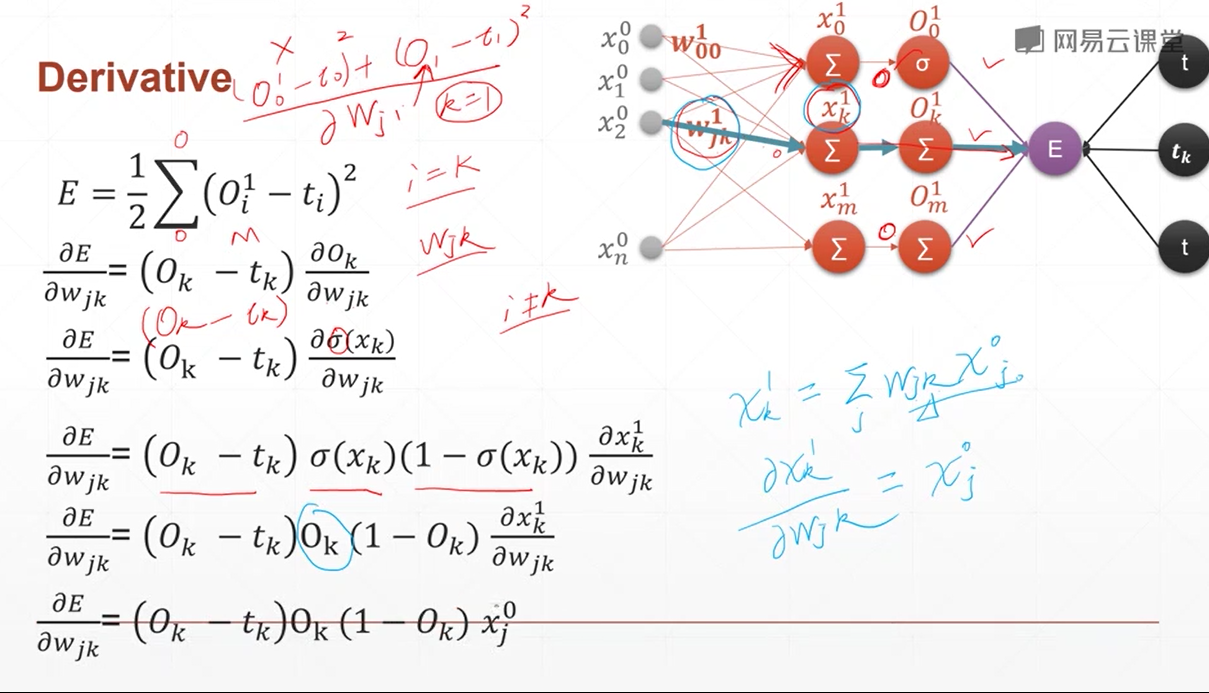 Derivative
(O₀¹ - t₀)² + (O₁ - t₁)²
∂Wj₁
k=1
E = 1/2 ∑ (O_i^1 − t_i)^2
0
0 m
i = K
∂E/∂w_jk = (O_k − t_k) ∂O_k/∂w_jk
Wjk
(O_k − t_k)
i ≠ k
∂E/∂w_jk = (O_k − t_k) ∂σ(x_k)/∂w_jk
∂E/∂w_jk = (O_k − t_k) σ(x_k)(1 − σ(x_k)) ∂x_k^1/∂w_jk
∂E/∂w_jk = (O_k − t_k)O_k (1 − O_k) ∂x_k^1/∂w_jk
∂E/∂w_jk = (O_k − t_k)O_k (1 − O_k) x_j^0
x_0^0
x_1^0
x_2^0
x_n^0
w_00^1
w_jk^1
x_0^1 O_0^1
∑ σ
x_k^1 O_k^1
∑ ∑ E
x_m^1 O_m^1
∑ ∑
t
t_k
t
网易云课堂
x_k^1 = ∑_j W_jk x_j^0
∂x_k^1/∂W_jk = x_j^0